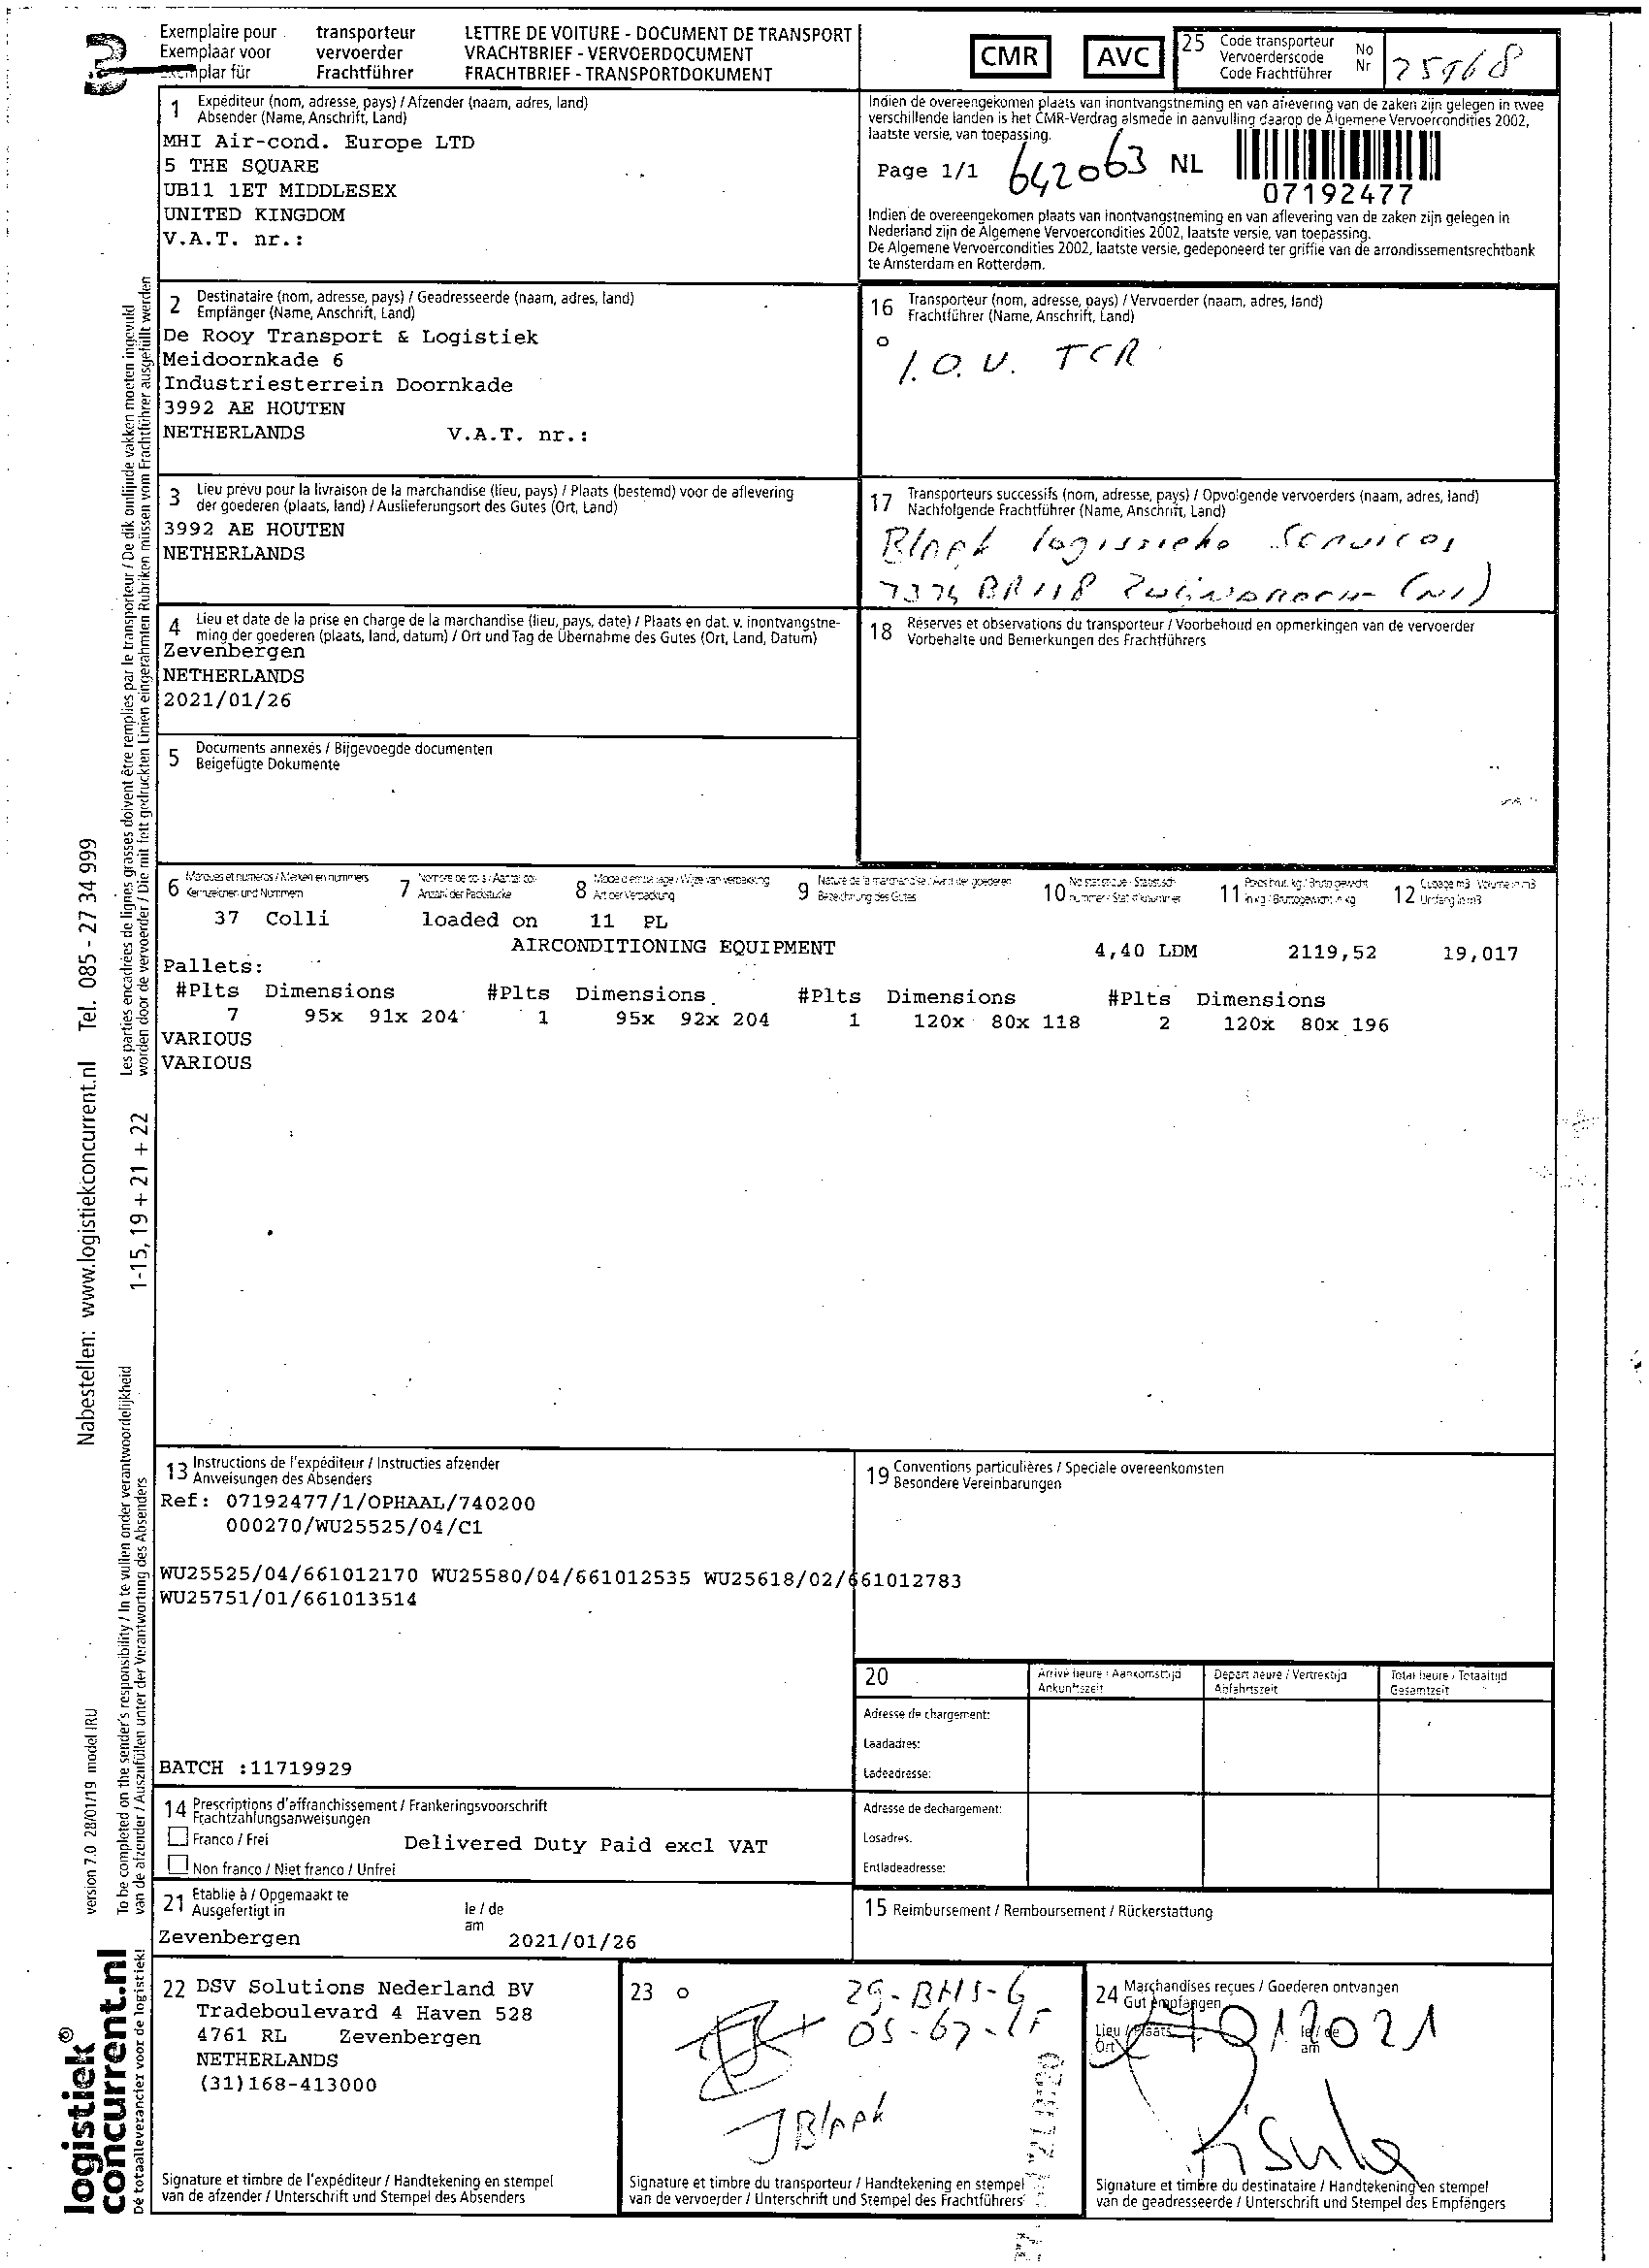 3
Exemplaire pour transporteur
Exemplaar voor vervoerder
Exemplar für Frachtführer
LETTRE DE VOITURE - DOCUMENT DE TRANSPORT
VRACHTBRIEF - VERVOERDOCUMENT
FRACHTBRIEF - TRANSPORTDOKUMENT
CMR
AVC
25 Code transporteur
Vervoerderscode
Code Frachtführer
No
Nr
1 Expéditeur (nom, adresse, pays) / Afzender (naam, adres, land)
Absender (Name, Anschrift, Land)
MHI Air-cond. Europe LTD
5 THE SQUARE
UB11 1ET MIDDLESEX
UNITED KINGDOM
V.A.T. nr.:
Indien de overeengekomen plaats van inontvangstneming en van aflevering van de zaken zijn gelegen in twee
verschillende landen is het CMR-Verdrag alsmede in aanvulling daarop de Algemene Vervoercondities 2002,
laatste versie, van toepassing.
Page 1/1 642063 NL
07192477
Indien de overeengekomen plaats van inontvangstneming en van aflevering van de zaken zijn gelegen in
Nederland zijn de Algemene Vervoercondities 2002, laatste versie, van toepassing.
De Algemene Vervoercondities 2002, laatste versie, gedeponeerd ter griffie van de arrondissementsrechtbank
te Amsterdam en Rotterdam.
2 Destinataire (nom, adresse, pays) / Geadresseerde (naam, adres, land)
Empfänger (Name, Anschrift, Land)
De Rooy Transport & Logistiek
Meidoornkade 6
Industriesterrein Doornkade
3992 AE HOUTEN
NETHERLANDS V.A.T. nr.:
16 Transporteur (nom, adresse, pays) / Vervoerder (naam, adres, land)
Frachtführer (Name, Anschrift, Land)
I.O.V. TCR
3 Lieu prévu pour la livraison de la marchandise (lieu, pays) / Plaats (bestemd) voor de aflevering
der goederen (plaats, land) / Auslieferungsort des Gutes (Ort, Land)
3992 AE HOUTEN
NETHERLANDS
17 Transporteurs successifs (nom, adresse, pays) / Opvolgende vervoerders (naam, adres, land)
Nachfolgende Frachtführer (Name, Anschrift, Land)
4 Lieu et date de la prise en charge de la marchandise (lieu, pays, date) / Plaats en dat. v. inontvangstne-
ming der goederen (plaats, land, datum) / Ort und Tag de Übernahme des Gutes (Ort, Land, Datum)
Zevenbergen
NETHERLANDS
2021/01/26
18 Réserves et observations du transporteur / Voorbehoud en opmerkingen van de vervoerder
Vorbehalte und Bemerkungen des Frachtführers
5 Documents annexés / Bijgevoegde documenten
Beigefügte Dokumente
6 Marques et numéros / Merken en nummers
Kennzeichen und Nummern
7 Nombre de colis / Aantal colli
Anzahl der Packstücke
8 Mode d'emballage / Wijze van verpakking
Art der Verpackung
9 Nature de la marchandise / Aard der goederen
Bezeichnung des Gutes
10 No statistique - Statistisch
nummer - Statistiknummer
11 Poids brut, kg / Bruto gewicht
in kg / Bruttogewicht in kg
12 Cubage m3 Volume in m3
Umfang in m3
37 Colli loaded on 11 PL
AIRCONDITIONING EQUIPMENT 4,40 LDM 2119,52 19,017
Pallets:
#Plts Dimensions #Plts Dimensions #Plts Dimensions #Plts Dimensions
7 95x 91x 204 1 95x 92x 204 1 120x 80x 118 2 120x 80x 196
VARIOUS
VARIOUS
13 Instructions de l'expéditeur / Instructies afzender
Anweisungen des Absenders
Ref: 07192477/1/OPHAAL/740200
000270/WU25525/04/C1
WU25525/04/661012170 WU25580/04/661012535 WU25618/02/661012783
WU25751/01/661013514
BATCH :11719929
19 Conventions particulières / Speciale overeenkomsten
Besondere Vereinbarungen
20 Arrivé heure / Aankomsttijd
Ankunftszeit
Depart heure / Vertrektijd
Abfahrtszeit
Total heure / Totaaltijd
Gesamtzeit
Adresse de chargement:
Laadadres:
Ladeadresse:
Adresse de dechargement:
Losadres.
Entladeadresse:
14 Prescriptions d'affranchissement / Frankeringsvoorschrift
Frachtzahlungsanweisungen
Franco / Frei
Delivered Duty Paid excl VAT
Non franco / Niet franco / Unfrei
21 Etablie à / Opgemaakt te
Ausgefertigt in
le / de
am
Zevenbergen 2021/01/26
15 Reimbursement / Remboursement / Rückerstattung
22 DSV Solutions Nederland BV
Tradeboulevard 4 Haven 528
4761 RL Zevenbergen
NETHERLANDS
(31)168-413000
Signature et timbre de l'expéditeur / Handtekening en stempel
van de afzender / Unterschrift und Stempel des Absenders
23
29-BHS-6
JBlaak
Signature et timbre du transporteur / Handtekening en stempel
van de vervoerder / Unterschrift und Stempel des Frachtführers
24 Marchandises reçues / Goederen ontvangen
Gut empfangen
Lieu / Plaats
Ort
le / de
am
Signature et timbre du destinataire / Handtekening en stempel
van de geadresseerde / Unterschrift und Stempel des Empfängers
Les parties encadrées de lignes grasses doivent être remplies par le transporteur / De dik omlijnde vakken moeten ingevuld
worden door de vervoerder / Die mit fett gedruckten Linien eingerahmten Rubriken müssen vom Frachtführer ausgefüllt werden
1-15, 19 + 21 + 22
To be completed on the sender's responsibility / In te vullen onder verantwoordelijkheid
van de afzender / Auszufüllen unter der Verantwortung des Absenders
Nabestellen: www.logistiekconcurrent.nl Tel. 085 - 27 34 999
version 7.0 28/01/19 model IRU
logistiek®
concurrent.nl
Dé totaalleverancier voor de logistiek!